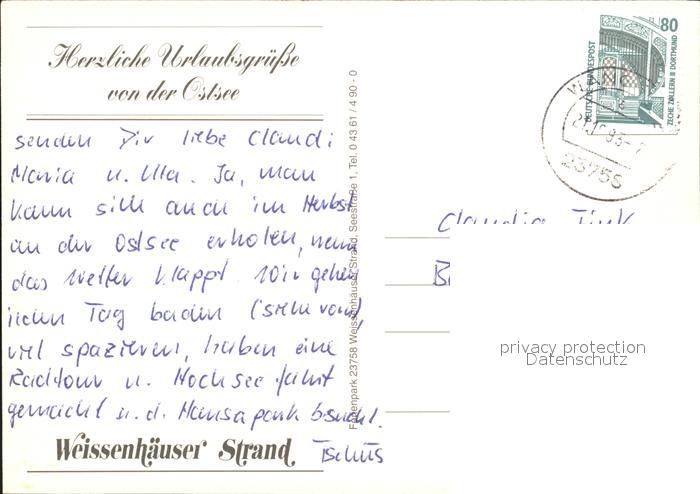 Herzliche Urlaubsgrüße
von der Ostsee
senden Dir liebe Claudi
Maria u. Ulla. Ja, man
kann sich auch im Herbst
an der Ostsee erholen, wenn
das Wetter klappt. Wir gehen
jeden Tag baden (siehe vorn),
viel spazieren, haben eine
Radtour u. Hochseefahrt
gemacht u. d. Hansapark besucht.
Tschüs
Weissenhäuser Strand
Ferienpark 23758 Weissenhäuser Strand, Seestraße 1, Tel. 0 43 61 / 4 90 - 0
80
DEUTSCHE BUNDESPOST
ZECHE ZOLLERN II DORTMUND
23758
Claudia
privacy protection
Datenschutz